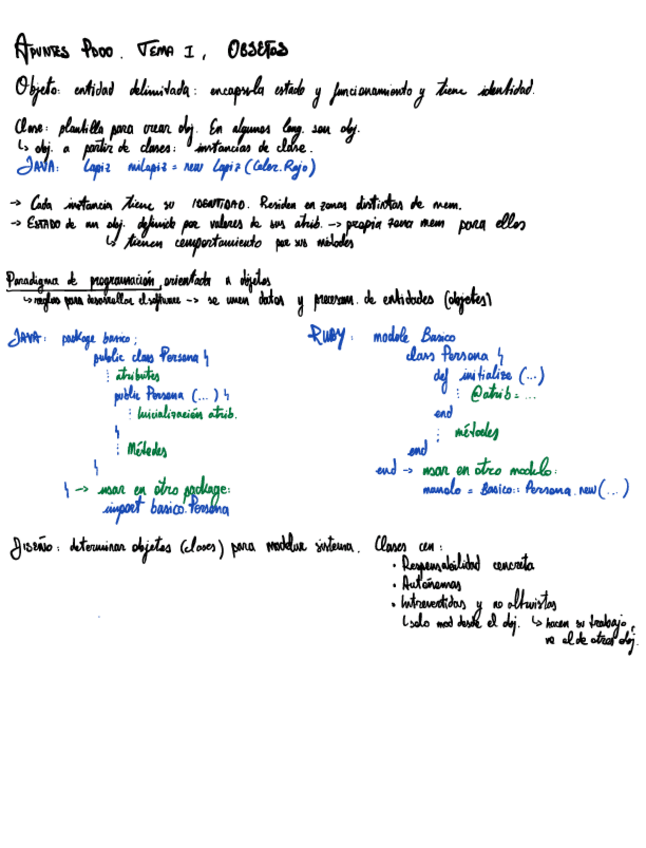 APUNTES PDOO. TEMA I, OBJETOS
Objeto: entidad delimitada: encapsula estado y funcionamiento y tiene identidad.
Clase: plantilla para crear obj. En algunos leng. son obj.
↳ obj. a partir de clases: instancias de clase.
JAVA: Lapiz miLapiz = new Lapiz (Color.Rojo)
→ Cada instancia tiene su IDENTIDAD. Residen en zonas distintas de mem.
→ ESTADO de un obj. definido por valores de sus atrib. → propia zona mem para ellos
↳ tienen comportamiento por sus métodos
Paradigma de programación orientada a objetos
↳ reglas para desarrollar el software → se unen datos y procesam. de entidades (objetos)
JAVA: package basico;
public class Persona {
⋮ atributos
public Persona (...) {
⋮ Inicialización atrib.
}
⋮ Métodos
}
} → usar en otro package:
import basico.Persona
RUBY: module Basico
class Persona {
def initialize (...)
⋮ @atrib = ...
end
⋮ métodos
end
end → usar en otro modulo:
manolo = Basico::Persona.new(...)
DISEÑO: determinar objetos (clases) para modelar sistema. Clases con:
• Responsabilidad concreta
• Autónomas
• Introvertidas y no altruistas
↳ solo mod desde el obj. ↳ hacen su trabajo,
no el de otros obj.